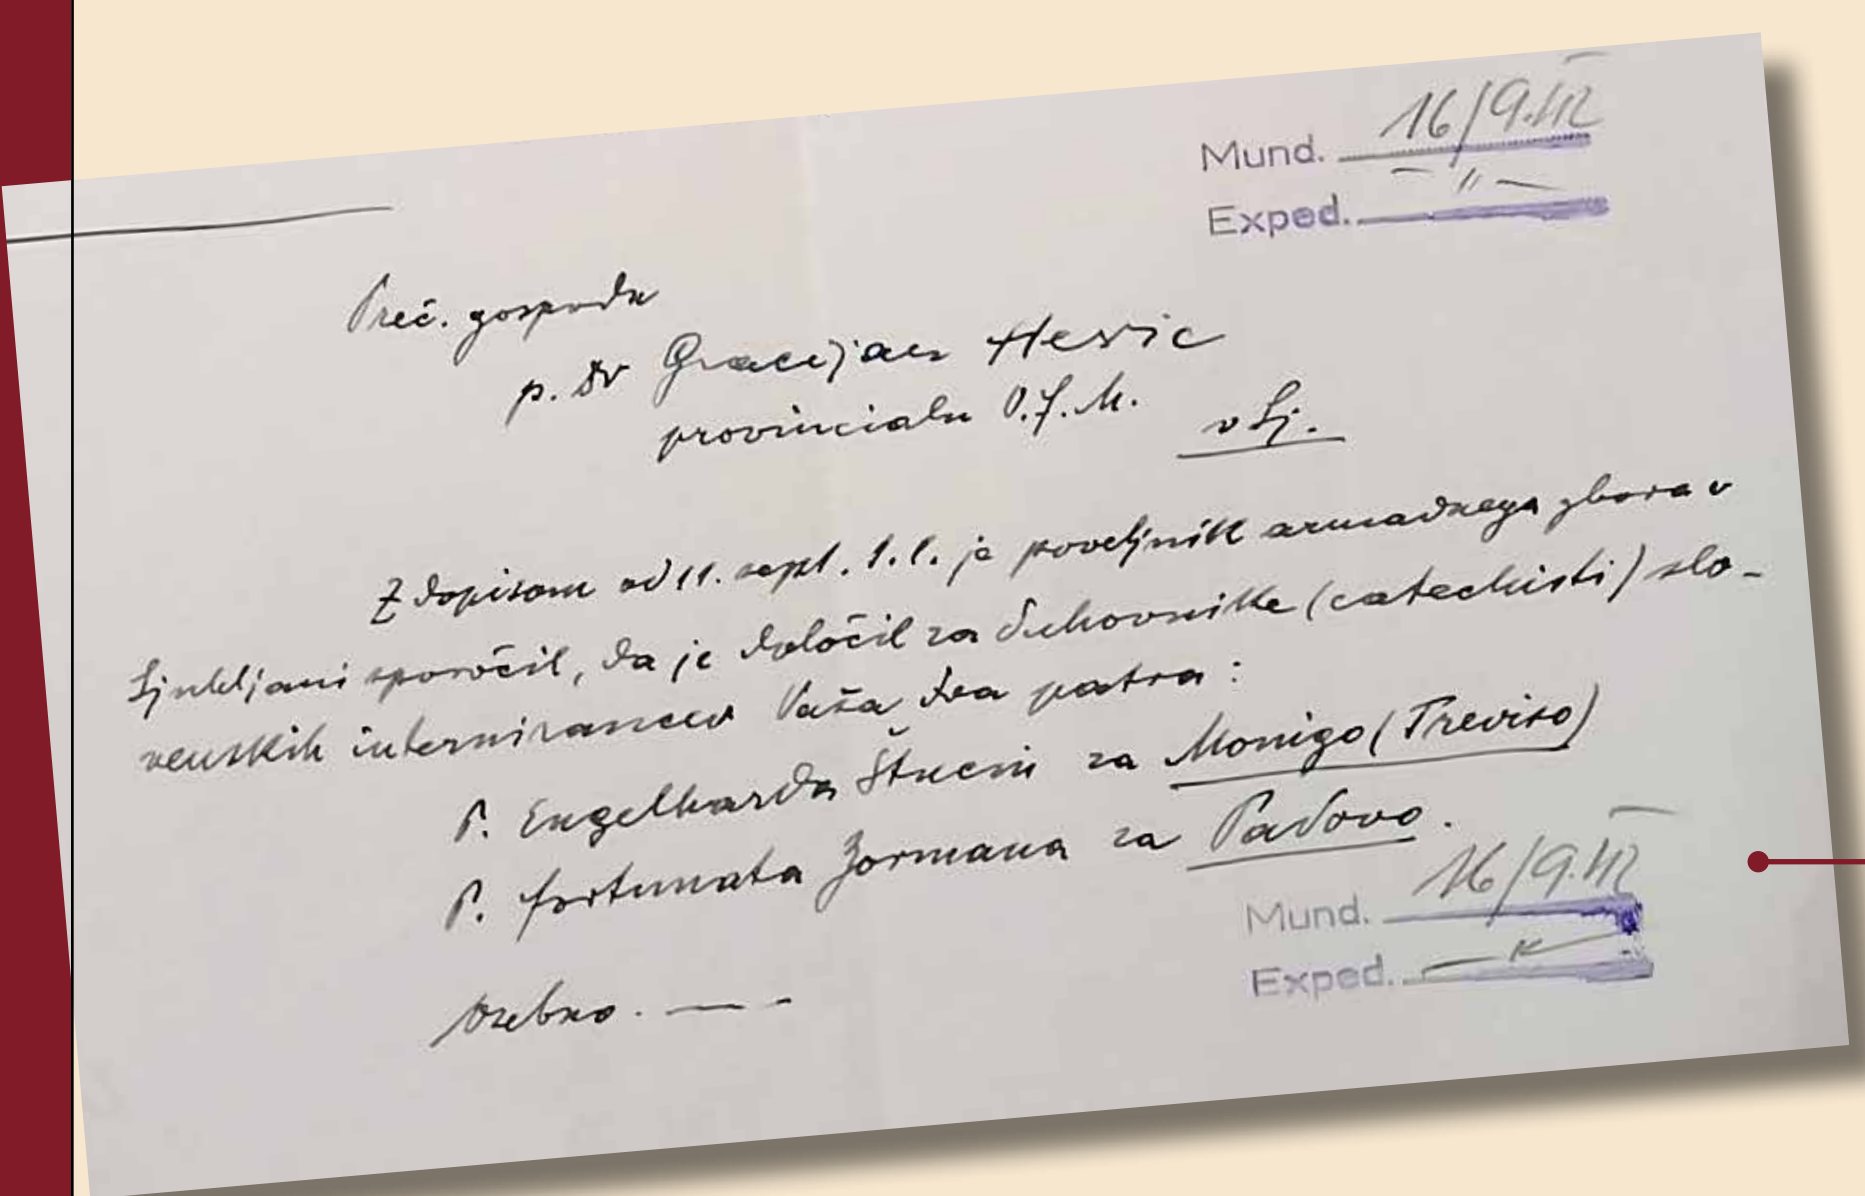 Mund. 16/9.42
Exped. — " —
Preč. gospodu
p. Dr Gracijan Heric
provincialu O.F.M. v Lj.
Z dopisom od 11. sept. t.l. je poveljnik armadnega zbora v
Ljubljani sporočil, da je določil za duhovnike (catechisti) slo-
venskih internirancev Vaša dva patra:
P. Engelharda Štucin za Monigo (Treviso)
P. Fortunata Zormana za Padovo.
Mund. 16/9.42
Exped.
osebno. — -